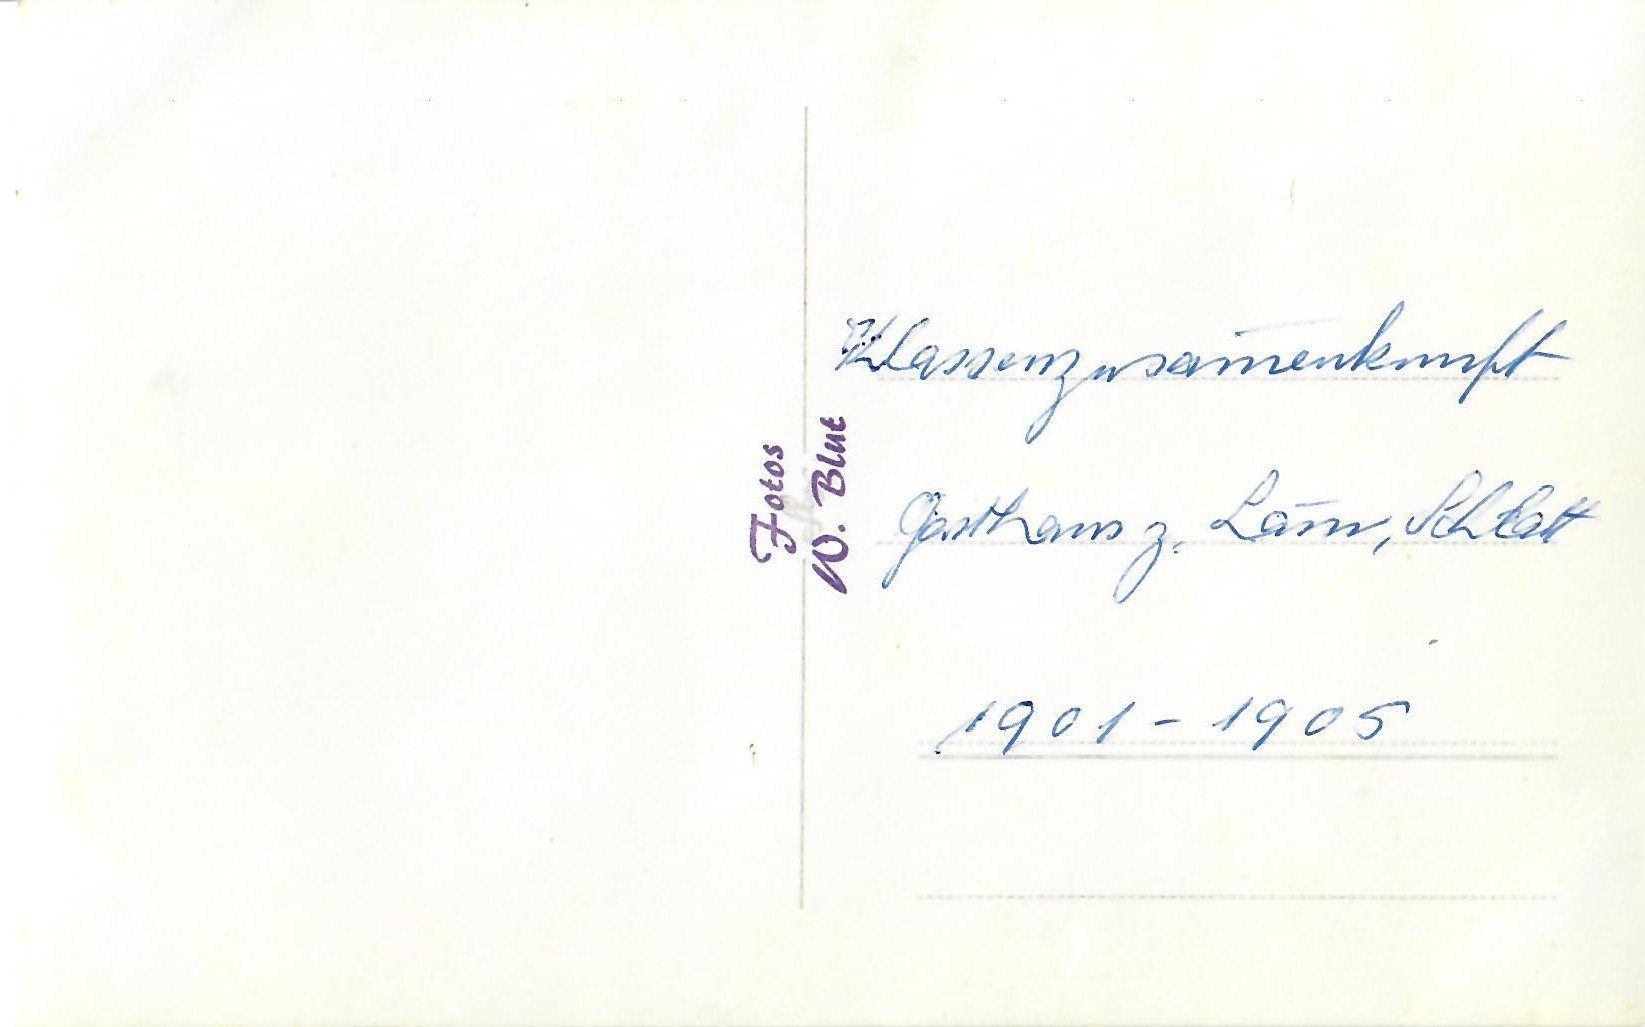 Fotos
W. Blut
Klassenzusam̅enkunft
Gasthaus z. Lam̅, Schlatt
1901 - 1905